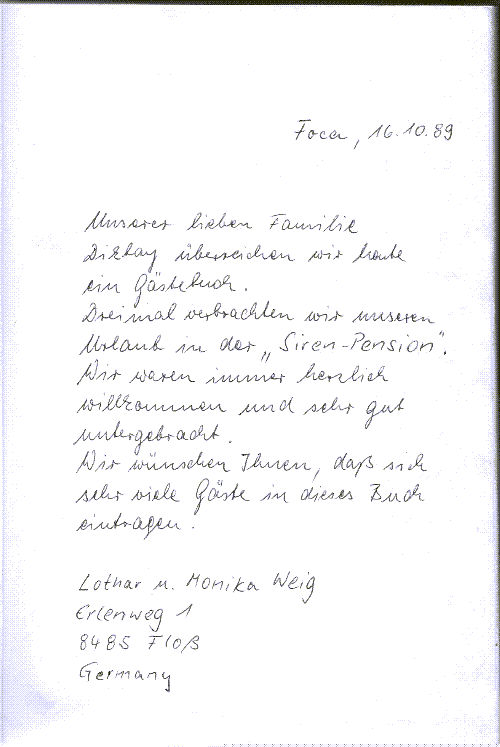 Foca, 16.10.89
Unserer lieben Familie
Dizbay überreichen wir heute
ein Gästebuch.
Dreimal verbrachten wir unseren
Urlaub in der „Siren-Pension".
Wir waren immer herzlich
willkommen und sehr gut
untergebracht.
Wir wünschen Ihnen, daß sich
sehr viele Gäste in dieses Buch
eintragen.
Lothar u. Monika Weig
Erlenweg 1
8485 Floß
Germany